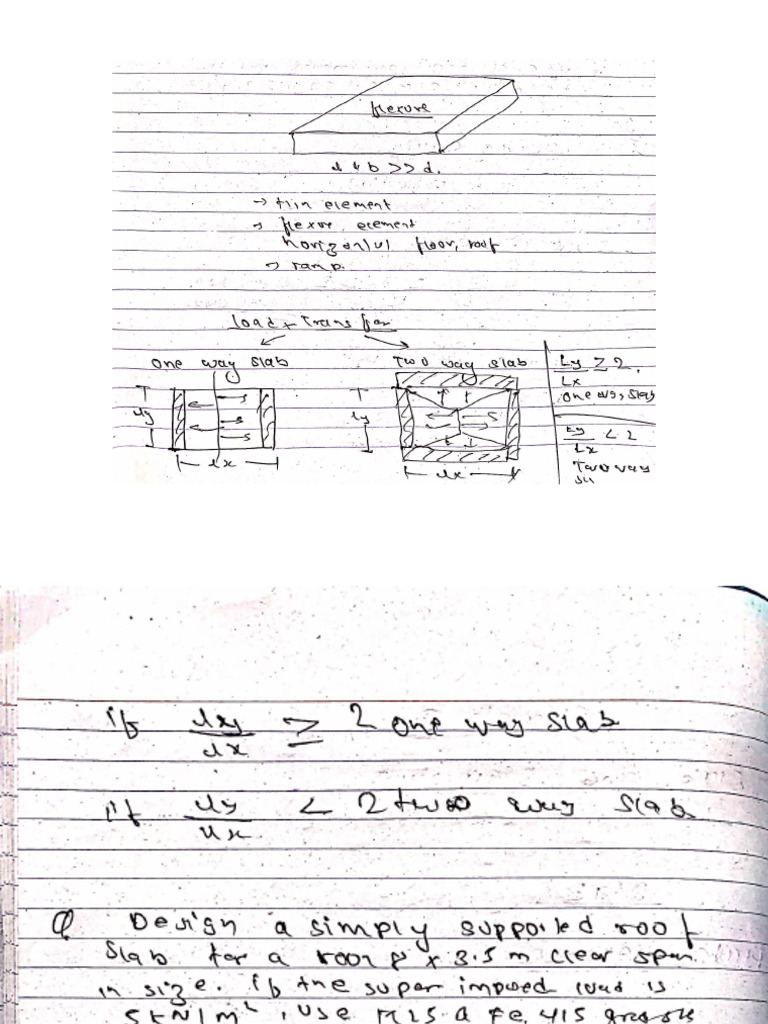 flexure
l & b >> d.
→ thin element
→ flexure element
horizontal floor, roof
→ ramp.
Load Transfer
One way slab
Two way slab
ly
lx
ly
lx
Ly/Lx ≥ 2.
One way slab
Ly/Lx < 2
Two way
if ly/lx ≥ 2 one way slab
if ly/lx < 2 two way slab
Q Design a simply supported roof
slab for a room 8 x 3.5 m clear span
in size. if the super imposed load is
5 kN/m², use M15 & Fe 415 grade